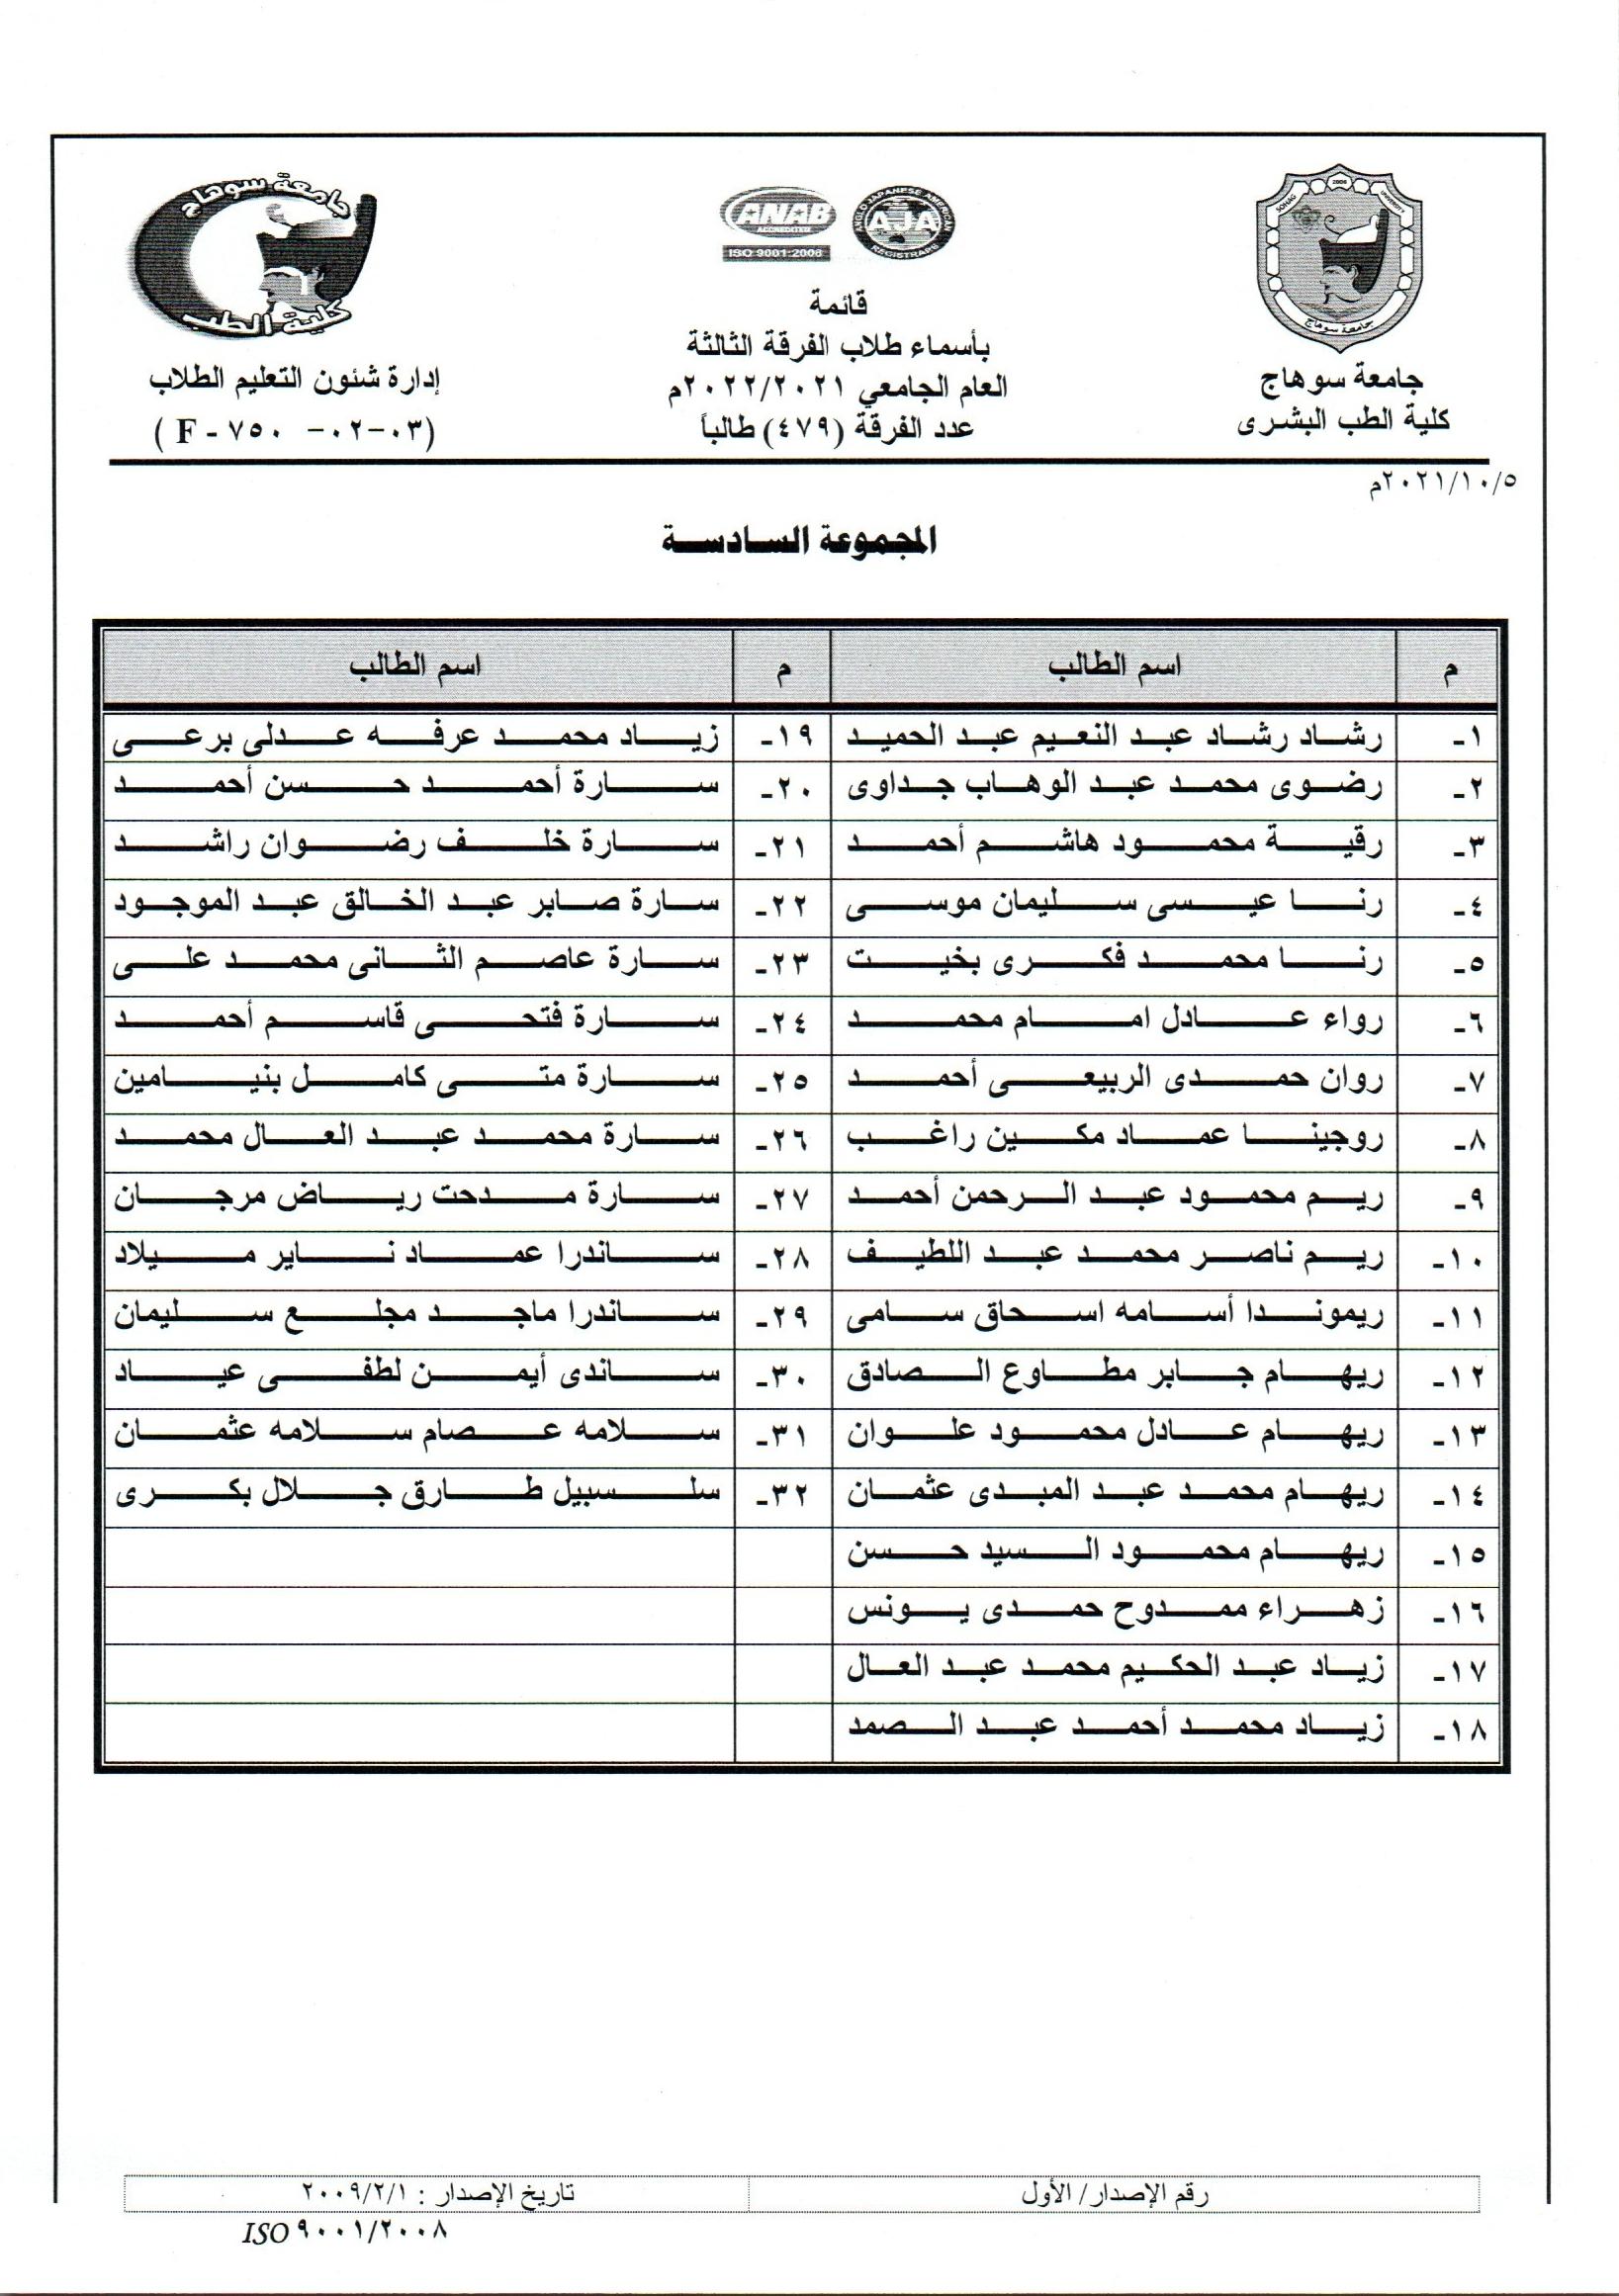 جامعة سوهاج
كلية الطب البشرى
SOHAG 2006 UNIVERSITY
جامعة سوهاج
ANAB
ACCREDITED
ISO 9001:2008
ANGLO JAPANESE AMERICAN
AJA
REGISTRARS
قائمة
بأسماء طلاب الفرقة الثالثة
العام الجامعي ٢٠٢٢/٢٠٢١م
عدد الفرقة (٤٧٩) طالباً
جامعة سوهاج
كلية الطب
إدارة شئون التعليم الطلاب
(F - ٧٥٠ -٠٢-٠٣)
٢٠٢١/١٠/٥م
المجموعة السادسة
م اسم الطالب م اسم الطالب
١- رشاد رشاد عبد النعيم عبد الحميد ١٩- زياد محمد عرفه عدلى برعى
٢- رضوى محمد عبد الوهاب جداوى ٢٠- سارة أحمد حسن أحمد
٣- رقية محمود هاشم أحمد ٢١- سارة خلف رضوان راشد
٤- رنا عيسى سليمان موسى ٢٢- سارة صابر عبد الخالق عبد الموجود
٥- رنا محمد فكرى بخيت ٢٣- سارة عاصم الثانى محمد على
٦- رواء عادل امام محمد ٢٤- سارة فتحى قاسم أحمد
٧- روان حمدى الربيعى أحمد ٢٥- سارة متى كامل بنيامين
٨- روجينا عماد مكين راغب ٢٦- سارة محمد عبد العال محمد
٩- ريم محمود عبد الرحمن أحمد ٢٧- سارة مدحت رياض مرجان
١٠- ريم ناصر محمد عبد اللطيف ٢٨- ساندرا عماد ناير ميلاد
١١- ريموندا أسامه اسحاق سامى ٢٩- ساندرا ماجد مجلع سليمان
١٢- ريهام جابر مطاوع الصادق ٣٠- ساندى أيمن لطفى عياد
١٣- ريهام عادل محمود علوان ٣١- سلامه عصام سلامه عثمان
١٤- ريهام محمد عبد المبدى عثمان ٣٢- سلسبيل طارق جلال بكرى
١٥- ريهام محمود السيد حسن
١٦- زهراء ممدوح حمدى يونس
١٧- زياد عبد الحكيم محمد عبد العال
١٨- زياد محمد أحمد عبد الصمد
رقم الإصدار/ الأول تاريخ الإصدار : ٢٠٠٩/٢/١
ISO ٩٠٠١/٢٠٠٨